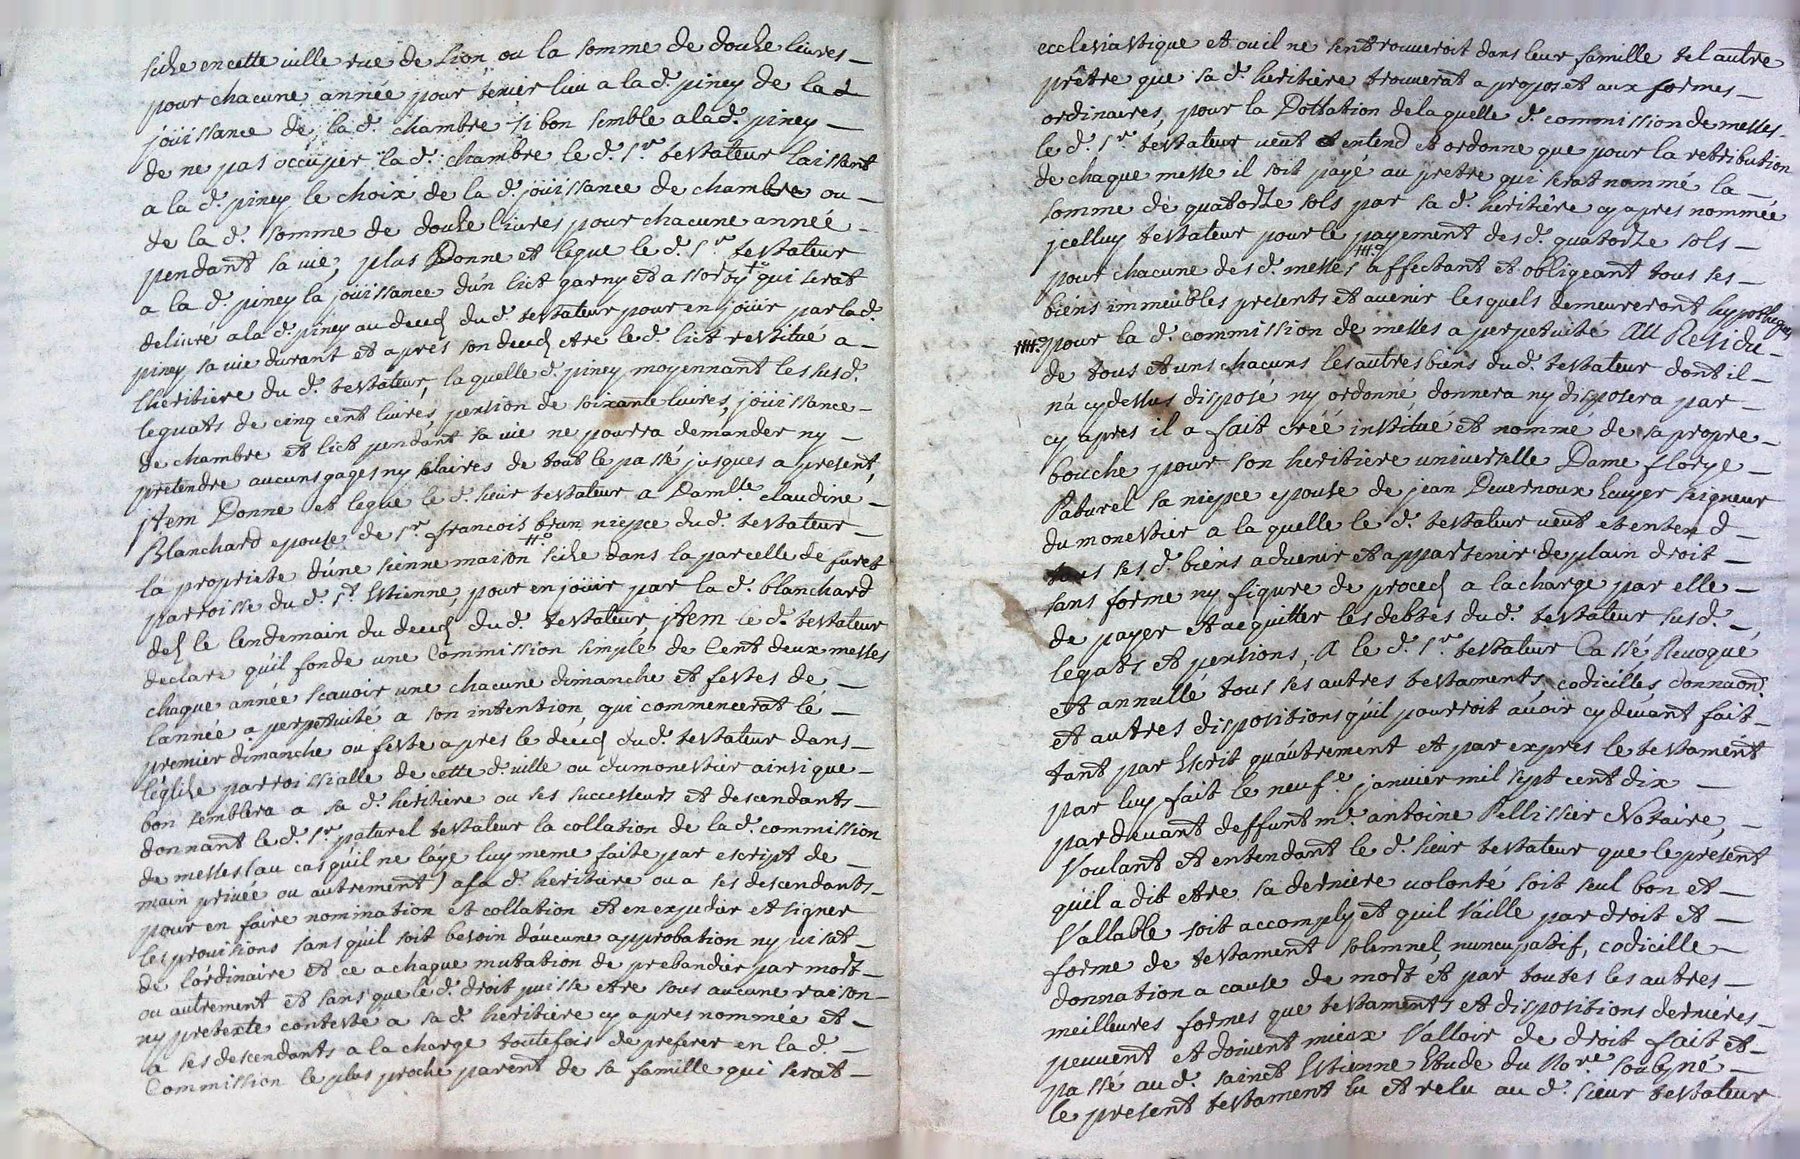 size en cette ville rue de Lion ou la somme de douze livres
pour chacune année pour tenir lieu a la d. piney de la d
jouissance de la d. chambre si bon semble a la d. piney
de ne pas occuper la d. chambre le d. Sr. testateur laissant
a la d. piney le choix de la d. jouissance de chambre ou
de la d. somme de douze livres pour chacune année
pendant sa vie, plus Donne et legue le d. Sr. testateur
a la d. piney la jouissance d'un lict garny et assorty qui serat
delivré a la d. piney au deced du d. testateur pour en jouir par la d.
piney sa vie durant et apres son deced etre le d. lict restitué a
l'heritiere du d. testateur, laquelle d. piney moyennant les susd.
leguats de cinq cent livres, pension de soixante livres, jouissance
de chambre et lict pendant sa vie ne pourra demander ny
pretendre aucuns gages ny salaires de tout le passé jusques a present,
jtem Donne et legue le d. sieur testateur a Damlle. claudine
Blanchard epouse de Sr. françois brun niepce du d. testateur
la propriete d'une sienne maison size dans la parcelle de furet
parroisse du d. St. Estienne, pour en jouir par la d. blanchard
des le lendemain du deced du d. testateur jtem le d. testateur
declare qu'il fonde une Commission simple de Cent deux messes
chaque année scavoir une chacune dimanche et festes de
l'année a perpetuité a son intention qui commencerat le
premier dimanche ou feste apres le deced du d. testateur dans
l'église parroissialle de cette d. ville ou du monestier ainsi que
bon semblera a sa d. heritiere ou ses successeurs et descendants
donnant le d. Sr. paturel testateur la collation de la d. commission
de messes (au cas qu'il ne l'aye luy meme faite par escript de
main privée ou autrement) a sa d. heritiere ou a ses descendants
pour en faire nomination et collation et en expedier et signer
les provisions sans qu'il soit besoin d'aucune approbation ny visat
de l'ordinaire et ce a chaque mutation de prebandier par mort
ou autrement et sans que le d. droit puisse etre sous aucune raison
ny pretexte contesté a sa d. heritiere cy apres nommée et
a ses descendants a la charge toutefois de preferer en la d.
Commission le plus proche parent de sa famille qui serat
ecclesiastique et ou il ne s'en trouveroit dans leur famille tel autre
prêtre que sa d. heritiere trouverat a propos et aux formes
ordinaires, pour la Dottation de laquelle d. commission de messes
le d. Sr. testateur veut et entend et ordonne que pour la retribution
de chaque messe il soit payé au pretre qui serat nommé la
somme de quatorze sols par sa d. heritiere cy apres nommée
jcelluy testateur pour le payement des d. quatorze sols
pour chacune des d. messes affectant et obligeant tous ses
biens immeubles presents et avenir lesquels demeureront hypothequés
pour la d. commission de messes a perpetuité Au Residu
de tous et uns chacuns les autres biens du d. testateur dont il
n'a cy dessus disposé ny ordonné donnera ny disposera par
cy apres il a fait créé institué et nommé de sa propre
bouche pour son heritiere universelle Dame florye
Paturel sa niepce epouse de jean Devernoux Ecuyer seigneur
du monestier a la quelle le d. testateur veut et entend
tous ses d. biens advenir et appartenir de plain droit
sans forme ny figure de proced a la charge par elle
de payer et acquitter les debtes du d. testateur susd.
legats et pensions, A le d. Sr. testateur Cassé, Revoqué
et annullé tous ses autres testaments, codicilles, donnaon.
et autres dispositions qu'il pourroit avoir cy devant fait
tant par Escrit qu'autrement et par expres le testament
par luy fait le neufe. janvier mil sept cent dix
pardevant deffunt me. antoine Pellissier Notaire,
Voulant et entendant le d. sieur testateur que le present
qu'il a dit etre sa derniere volonté soit seul bon et
Vallable soit accomply et qu'il vaille par droit et
forme de testament solemnel, nuncupatif, codicille
donnation a cause de mort et par toutes les autres
meilleures formes que testaments et dispositions dernieres
peuvent et doivent mieux Valloir de droit fait et
passé au d. sainct Estienne Etude du Nore. soubsné
le present testament lu et relu au d. sieur testateur